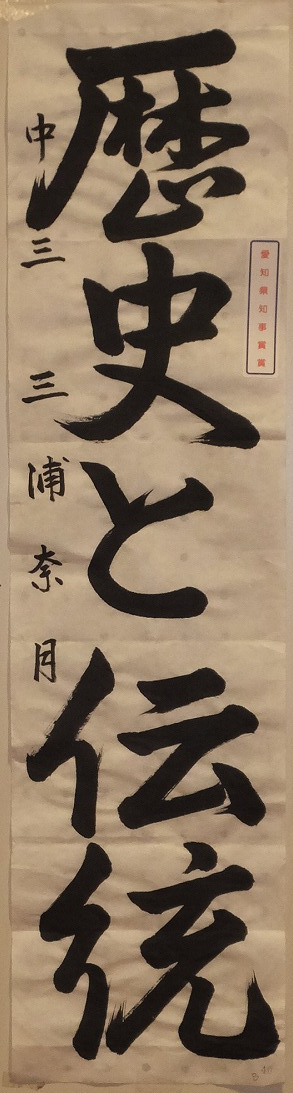 愛知県知事賞賞
歴史と伝統
中三 三浦奈月